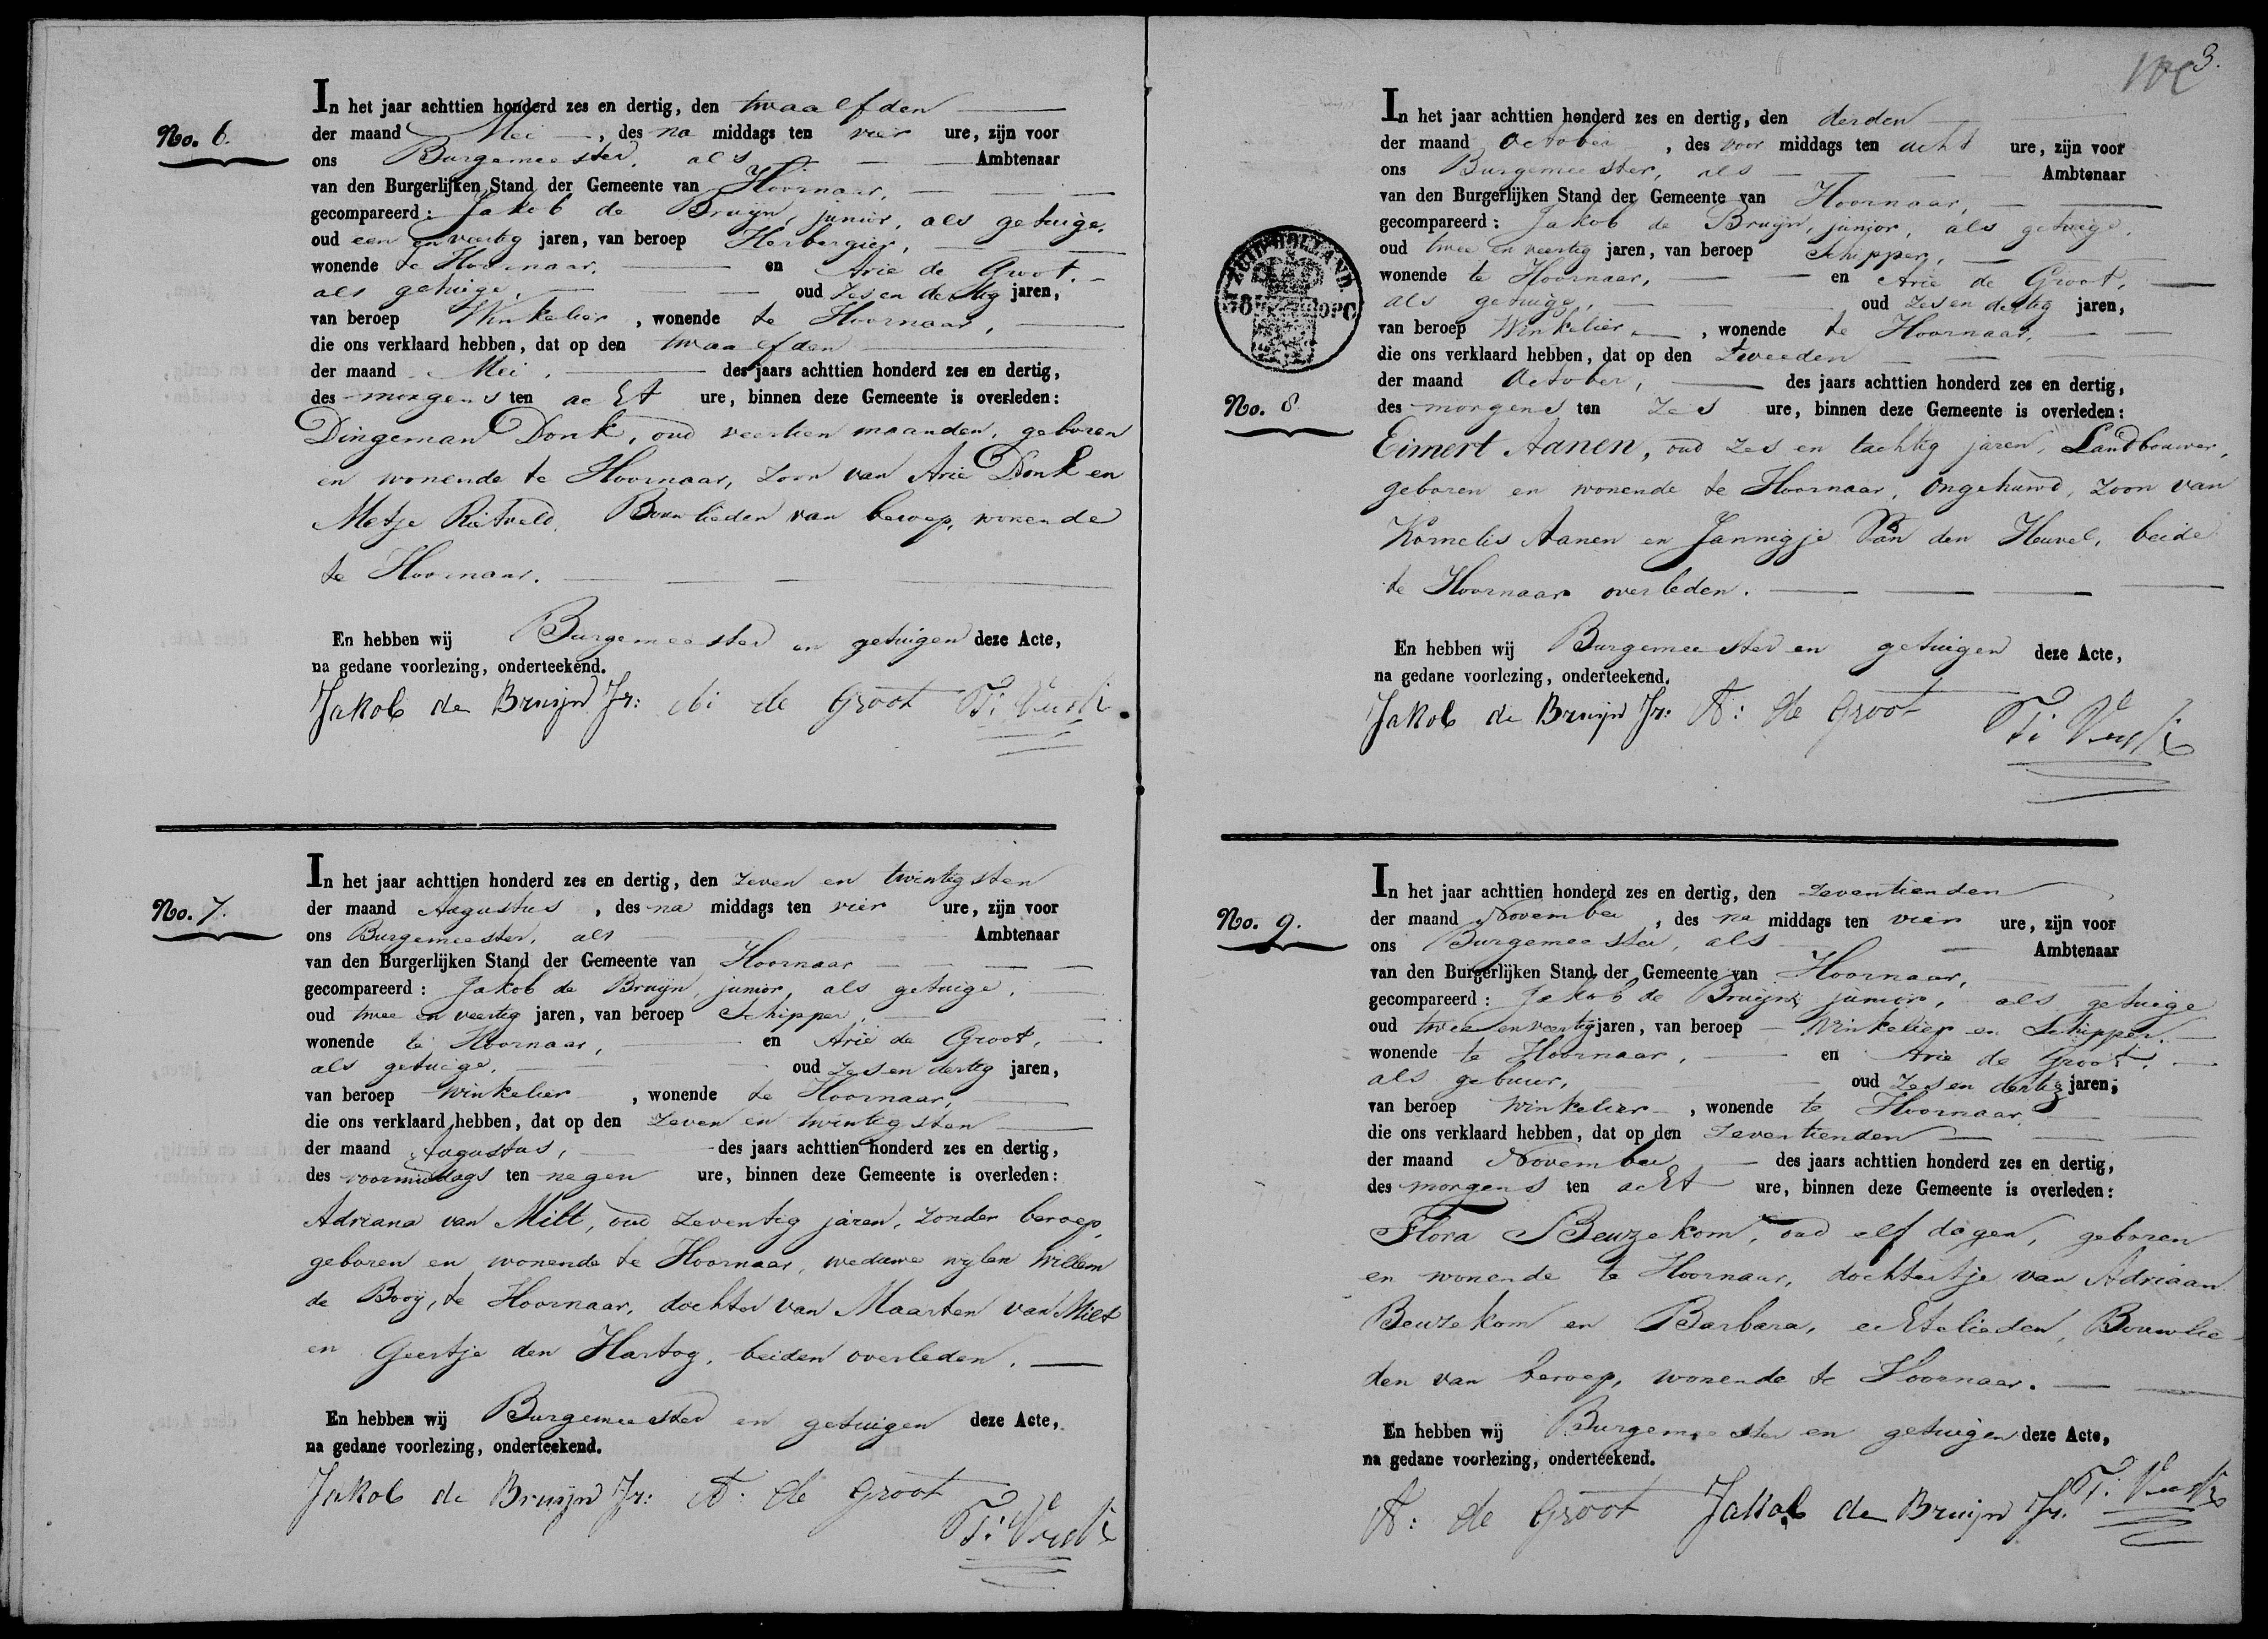 No. 6.
In het jaar achttien honderd zes en dertig, den twaalfden
der maand Mei, des na middags ten vier ure, zijn voor
ons Burgemeester, als Ambtenaar
van den Burgerlijken Stand der Gemeente van Hoornaar,
gecompareerd: Jakob de Bruijn, junior, als getuige,
oud een en veertig jaren, van beroep Herbergier,
wonende te Hoornaar, en Arie de Groot,
als getuige, oud zes en dertig jaren,
van beroep Winkelier, wonende te Hoornaar,
die ons verklaard hebben, dat op den twaalfden
der maand Mei, des jaars achttien honderd zes en dertig,
des morgens ten acht ure, binnen deze Gemeente is overleden:
Dingeman Donk, oud veertien maanden, geboren
en wonende te Hoornaar, zoon van Arie Donk en
Metje Rietveld, Bouwlieden van beroep, wonende
te Hoornaar.
En hebben wij Burgemeester en getuigen deze Acte,
na gedane voorlezing, onderteekend.
Jakob de Bruijn Jr: A: de Groot
No. 7.
In het jaar achttien honderd zes en dertig, den zeven en twintigsten
der maand Augustus, des na middags ten vier ure, zijn voor
ons Burgemeester, als Ambtenaar
van den Burgerlijken Stand der Gemeente van Hoornaar
gecompareerd: Jakob de Bruijn, junior, als getuige,
oud twee en veertig jaren, van beroep Schipper,
wonende te Hoornaar, en Arie de Groot,
als getuige, oud zes en dertig jaren,
van beroep Winkelier, wonende te Hoornaar,
die ons verklaard hebben, dat op den zeven en twintigsten
der maand Augustus, des jaars achttien honderd zes en dertig,
des voormiddags ten negen ure, binnen deze Gemeente is overleden:
Adriana van Milt, oud zeventig jaren, zonder beroep,
geboren en wonende te Hoornaar, weduwe wijlen Willem
de Booij, te Hoornaar, dochter van Maarten van Milt
en Geertje den Hartog, beiden overleden.
En hebben wij Burgemeester en getuigen deze Acte,
na gedane voorlezing, onderteekend.
Jakob de Bruijn Jr: A: de Groot
3.
ZUID HOLLAND
No. 8.
In het jaar achttien honderd zes en dertig, den derden
der maand October, des voor middags ten acht ure, zijn voor
ons Burgemeester, als Ambtenaar
van den Burgerlijken Stand der Gemeente van Hoornaar,
gecompareerd: Jakob de Bruijn, junior, als getuige,
oud twee en veertig jaren, van beroep Schipper,
wonende te Hoornaar, en Arie de Groot,
als getuige, oud zes en dertig jaren,
van beroep Winkelier, wonende te Hoornaar,
die ons verklaard hebben, dat op den tweeden
der maand October, des jaars achttien honderd zes en dertig,
des morgens ten zes ure, binnen deze Gemeente is overleden:
Eimert Aanen, oud zes en tachtig jaren, Landbouwer,
geboren en wonende te Hoornaar, ongehuwd, zoon van
Kornelis Aanen en Jannigje Van den Heuvel, beide
te Hoornaar overleden.
En hebben wij Burgemeester en getuigen deze Acte,
na gedane voorlezing, onderteekend.
Jakob de Bruijn Jr: A: de Groot
No. 9.
In het jaar achttien honderd zes en dertig, den zeventienden
der maand November, des na middags ten vier ure, zijn voor
ons Burgemeester, als Ambtenaar
van den Burgerlijken Stand der Gemeente van Hoornaar,
gecompareerd: Jakob de Bruijn, junior, als getuige
oud twee en veertig jaren, van beroep Winkelier en Schipper,
wonende te Hoornaar, en Arie de Groot,
als gebuur, oud zes en dertig jaren;
van beroep Winkelier, wonende te Hoornaar
die ons verklaard hebben, dat op den zeventienden
der maand November des jaars achttien honderd zes en dertig,
des morgens ten acht ure, binnen deze Gemeente is overleden:
Flora Beuzekom, oud elf dagen, geboren
en wonende te Hoornaar, dochtertje van Adriaan
Beuzekom en Barbara, echtelieden, Bouwlie-
den van beroep, wonende te Hoornaar.
En hebben wij Burgemeester en getuigen deze Acte,
na gedane voorlezing, onderteekend.
A: de Groot Jakob de Bruijn Jr.